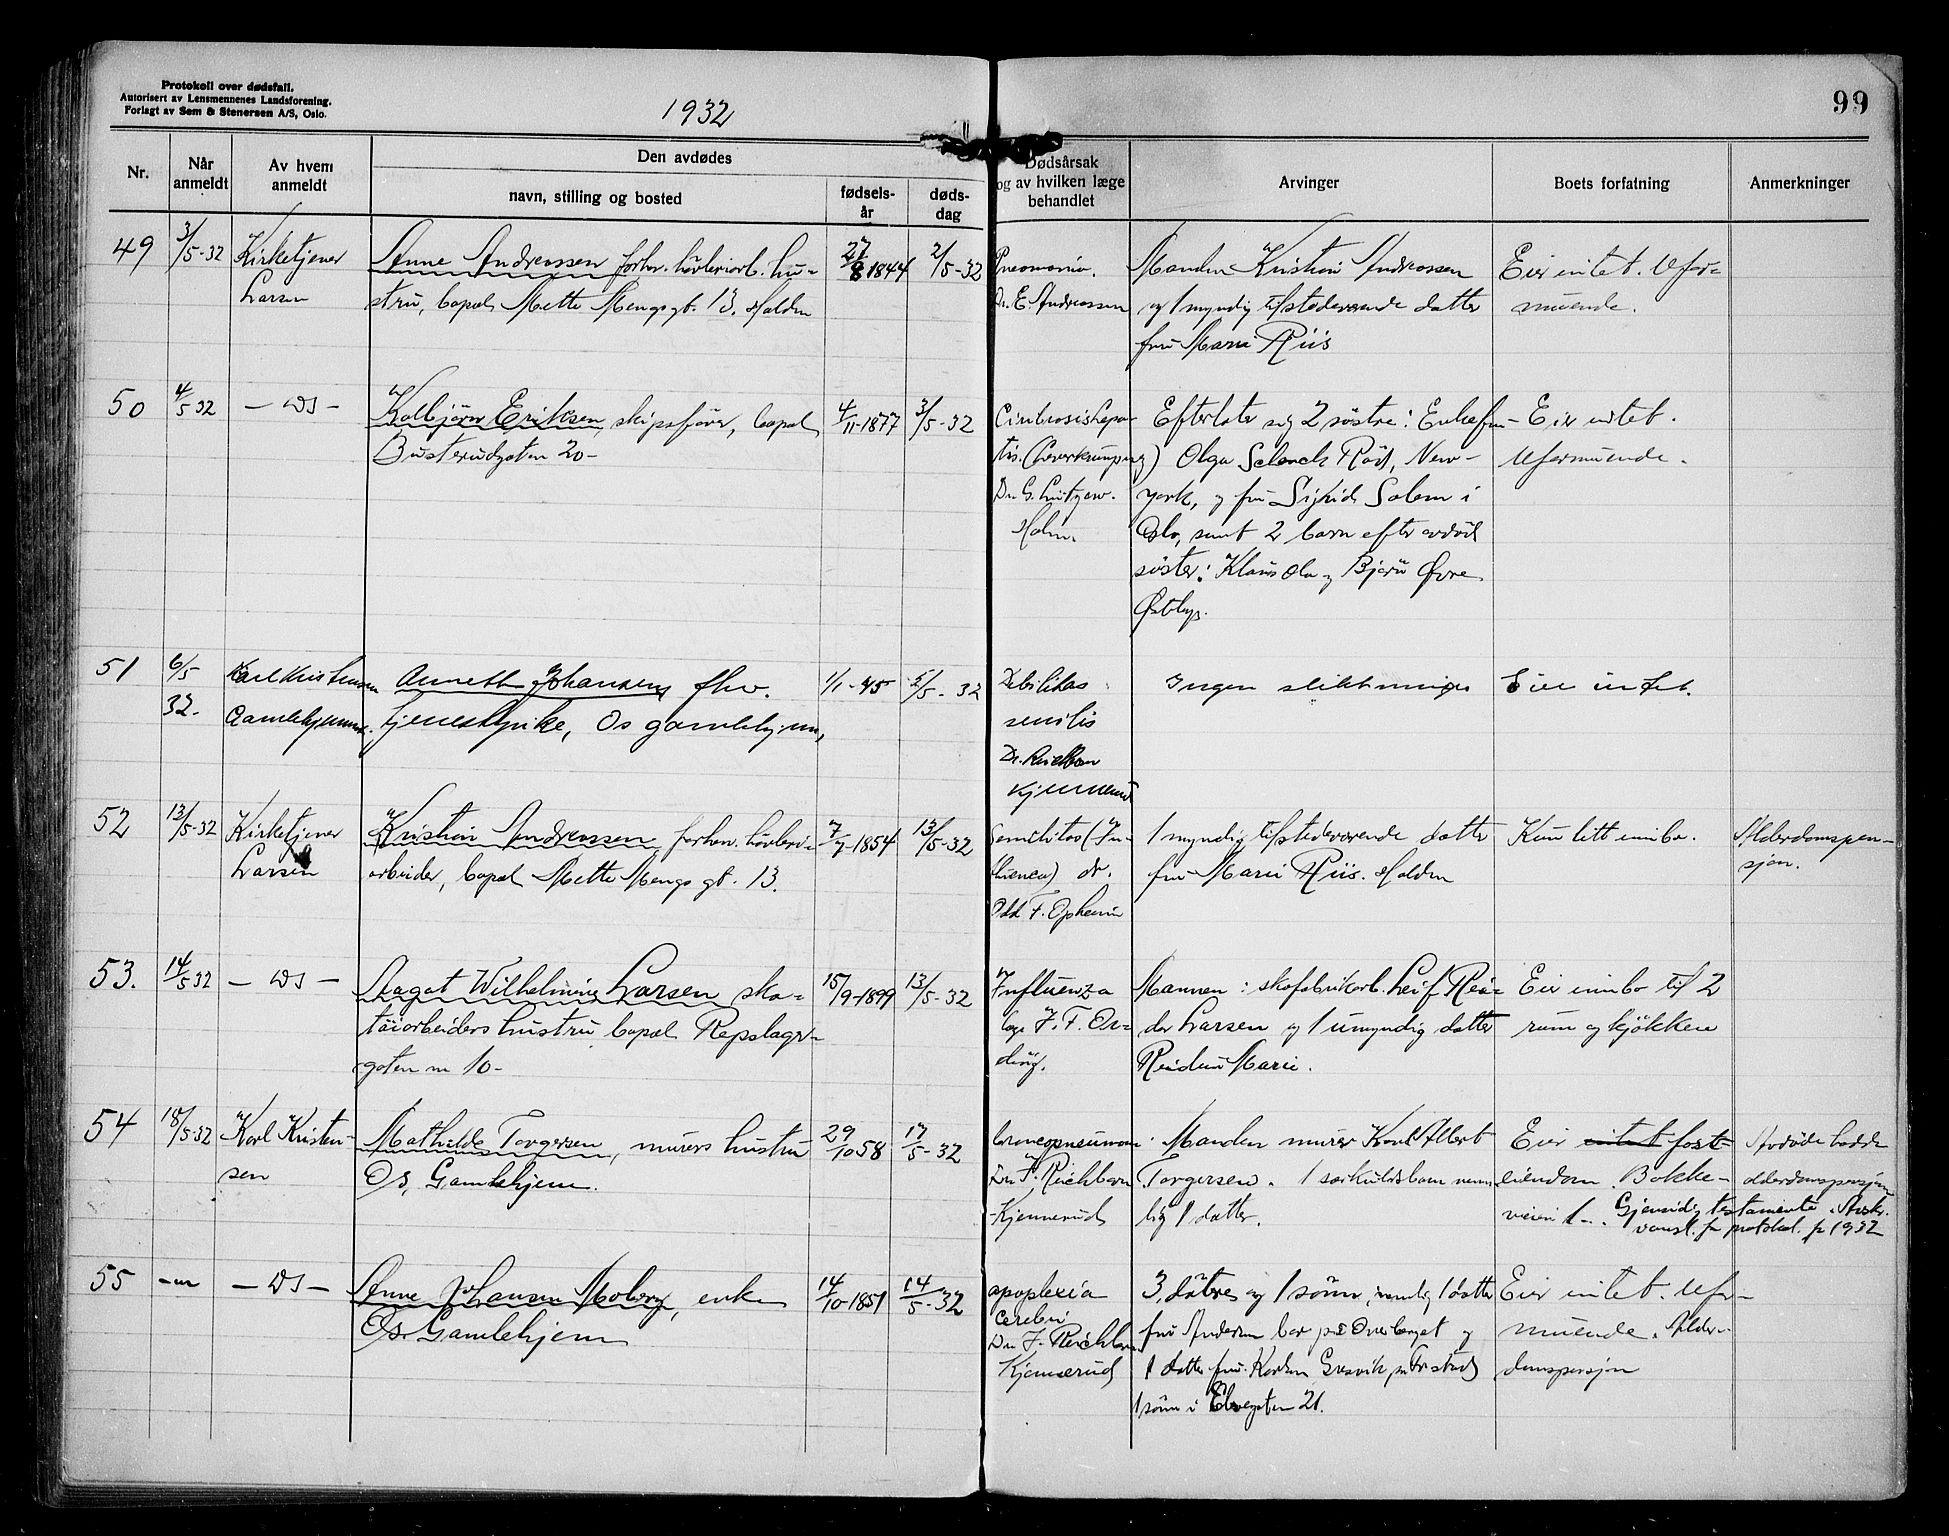 Protokoll over dødsfall.
Autorisert av Lensmennenes Landsforening.
Forlagt av Sem & Stenersen A/S, Oslo.
1932
99
Nr.
Når anmeldt
Av hvem anmeldt
Den avdødes
navn, stilling og bosted
fødsels-år
døds-dag
Dødsårsak og av hvilken læge behandlet
Arvinger
Boets forfatning
Anmerkninger
49
3/5-32
Kirketjener
Larsen
Anne Andreassen forhv. høvleriarb. hu-
stru, bopæl Mette Mengs gt. 13. Halden
27/8 1844
2/5-32
Pneomonia.
Dr. E. Andreassen
Manden Kristian Andreassen
og 1 myndig tilstedeværende datter
fru Marie Riis
Eier intet. Ufor-
muende.
50
4/5 32
— Ds —
Kolbjørn Eriksen, skipsfører, bopæl
Busterudgaten 20-
4/11-1877
3/5-32
Cirrhosis hepa-
tis. (Leverkrumpning)
Dr. G. Lützow-
Holm.
Efterlater sig 2 søstre: Enkefru
Olga Schenck Röd, New-
york, og fru Sigrid Salem i
Oslo, samt 2 barn efter avdød
søster: Klaus Ola og Bjørn Øvre
Østbye.
Eier intet.
Uformuende.
51
6/5
32.
Karl Kristensen
Gamlehjemmet.
Anneth Johansen, fhv.
tjenestepike, Os gamlehjem,
1/1-45
5/5-32
Debilitas
senilis
Dr. Reichborn
Kjennerud
Ingen slektninger
Eier intet.
52
13/5-32
Kirketjener
Larsen
Kristian Andreassen, forhen. høvleri-
arbeider, bopæl Mette Mengs gt. 13.
7/7-1854
13/5-32
Senilitas (In-
fluenca) dr.
Odd F. Opheim
1 myndig tilstedeværende datter
fru Marie Riis. Halden
Kun litt innbo.
Alderdomspen-
sjon.
53.
14/5 32
— Ds —
Aagot Wilhelmine Larsen sko-
tøiarbeiders hustru bopæl Repslager-
gaten nr 10-
15/9-1899
13/5-32
Influenza
læge F. F. Or-
ding.
Mannen: skofabrikarb. Leif Rei-
dar Larsen og 1 umyndig datter
Reidun Marie.
Eier innbo til 2
rum og kjøkken
54
18/5-32
Karl Kristen-
sen
Mathilde Torgersen, murers hustru
Os, Gamlehjem.
29/10 58
17/5-32
Dr. F. Reichborn
Kjennerud
Manden murer Karl Albert
Torgersen. 1 særkuldsbarn nem-
lig 1 datter.
Eier intet fast
eiendom. Bakke-
veien 1-. Gjensidig testamente. Avskr.
vansl. fr protokol. p 1932
Avdøde hadde
alderdomspensjon
55
— Ds —
Anne Johansen Moberg, enke
Os. Gamlehjem
14/10-1851
14/5-32
apoplexia
cerebri
Dr. F. Reichborn
Kjennerud
3 døtre og 1 sønn, nemlig 1 datter
fru Andersen bor på Overberget og
1 datter fru Karen Gresvik, pr Fr.stad
1 sønn i Elvegaten 21.
Eier intet. Ufor-
muende. Alder-
domspensjon